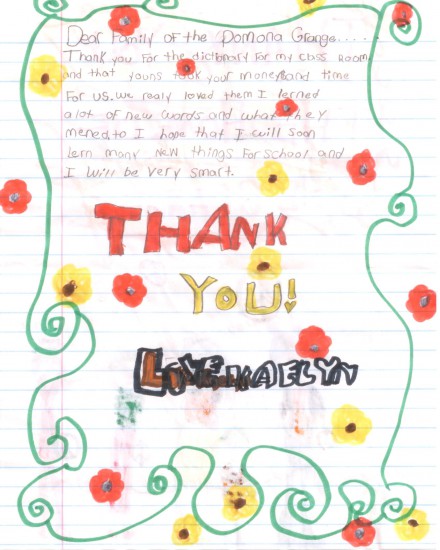 Dear Family of the Pomona Grange.....
Thank you for the dictionary for my class room
and that youns took your money and time
For us. We realy loved them I lerned
alot of new words and what they
mened to I hope that I will soon
lern many new things For school and
I will be very smart.
THANK
YOU!
LOVE KAELYN